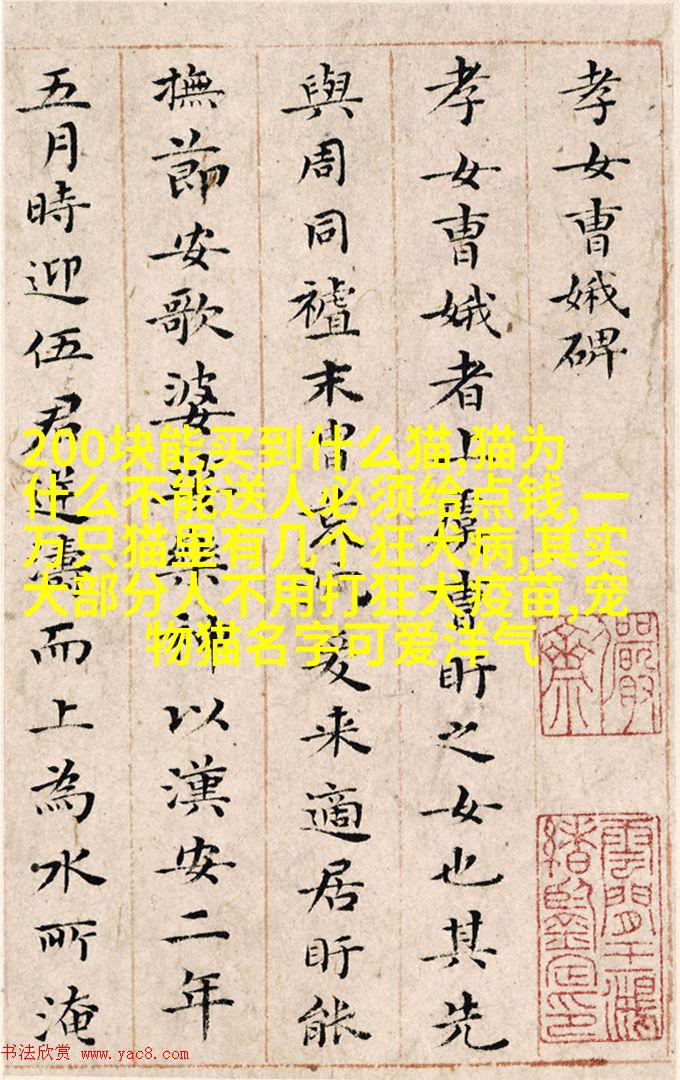 孝女曹娥碑
孝女曹娥者上虞曹盱之女也其先
與周同末胄荒沉爰来適居盱能
撫節安歌婆娑樂神以漢安二年
五月時迎伍君逆濤而上為水所淹
200块能买到什么猫,猫为
什么不能送人必须给点钱,一
万只猫里有几个狂犬病,其实
大部分人不用打狂犬疫苗,宠
物猫名字可爱洋气
儼齋
雲間王鴻
緒鑒定印
书法欣赏 www.yac8.com